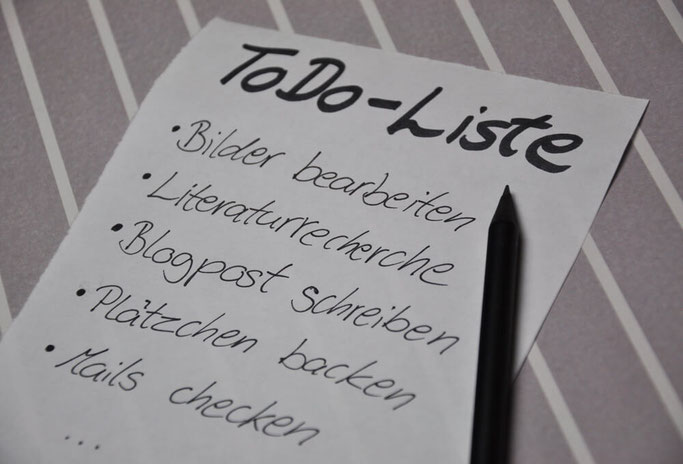 ToDo-Liste
• Bilder bearbeiten
• Literaturrecherche
• Blogpost schreiben
• Plätzchen backen
• Mails checken
...